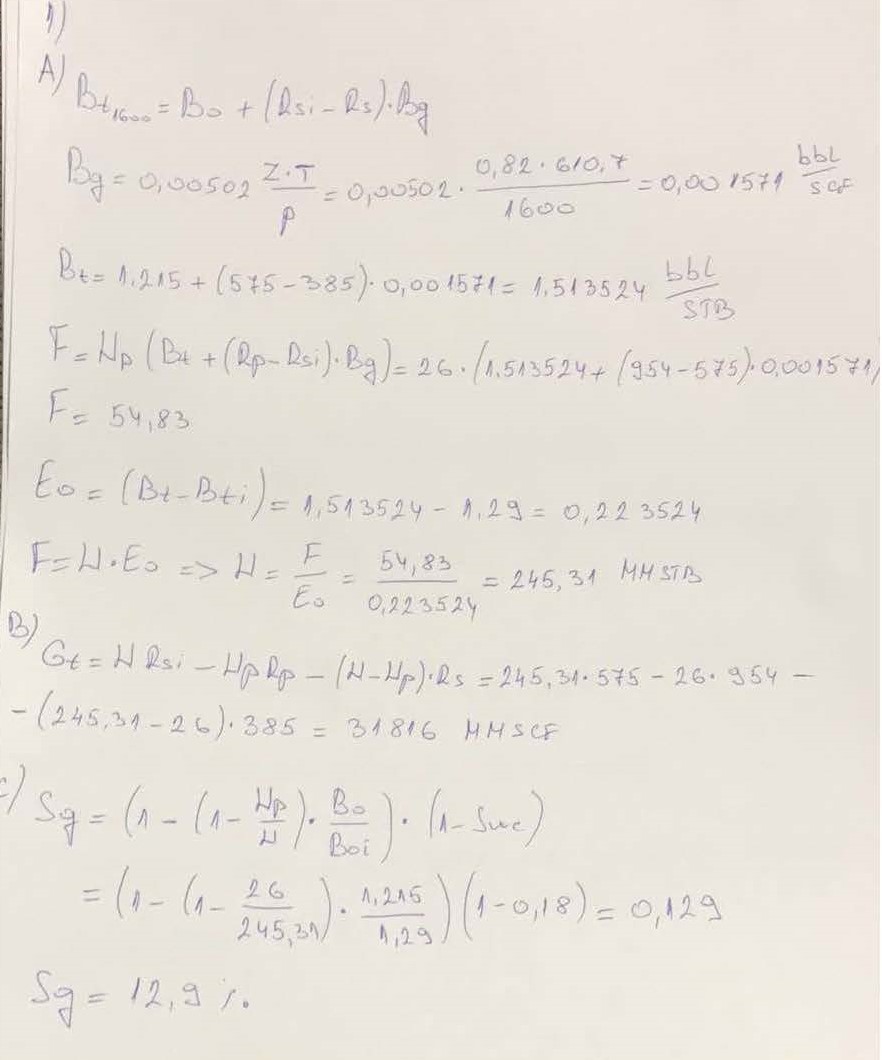 1)
A) Bt1600 = Bo + (Rsi - Rs)·Bg
Bg = 0,00502 Z·T/P = 0,00502 · 0,82·610,7/1600 = 0,001571 bbl/SCF
Bt = 1.215 + (575-385)·0,001571 = 1,513524 bbl/STB
F = Np (Bt + (Rp - Rsi)·Bg) = 26·(1.513524 + (954-575)·0,001571)
F = 54,83
Eo = (Bt - Bti) = 1,513524 - 1.29 = 0,223524
F = N·Eo => N = F/Eo = 54,83/0,223524 = 245,31 MMSTB
B)
Gt = N Rsi - Np Rp - (N-Np)·Rs = 245,31·575 - 26·954 -
- (245,31-26)·385 = 31816 MMSCF
c) Sg = (1 - (1 - Np/N)·Bo/Boi)·(1-Swc)
= (1 - (1 - 26/245,31)·1,215/1,29)(1-0,18) = 0,129
Sg = 12,9 %.